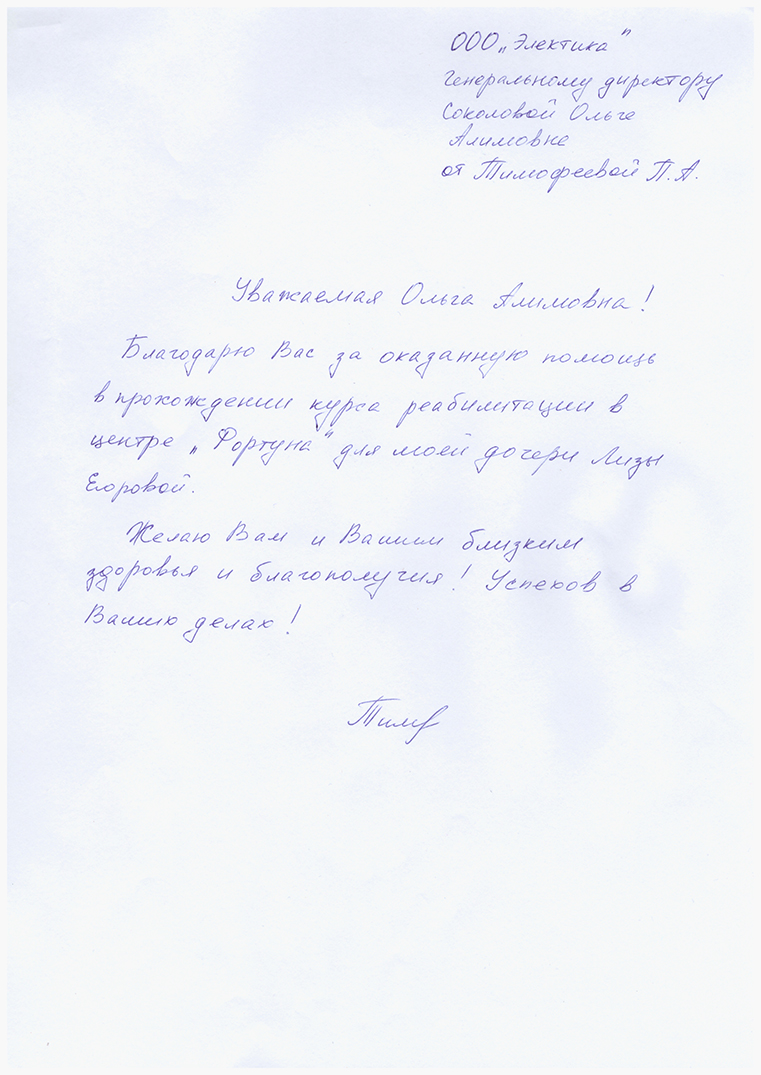 ООО „Электика"
Генеральному директору
Соколовой Ольге
Алимовне
от Тимофеевой П.А.
Уважаемая Ольга Алимовна!
Благодарю Вас за оказанную помощь
в прохождении курса реабилитации в
центре „Фортуна" для моей дочери Лизы
Егоровой.
Желаю Вам и Вашим близким
здоровья и благополучия! Успехов в
Ваших делах!